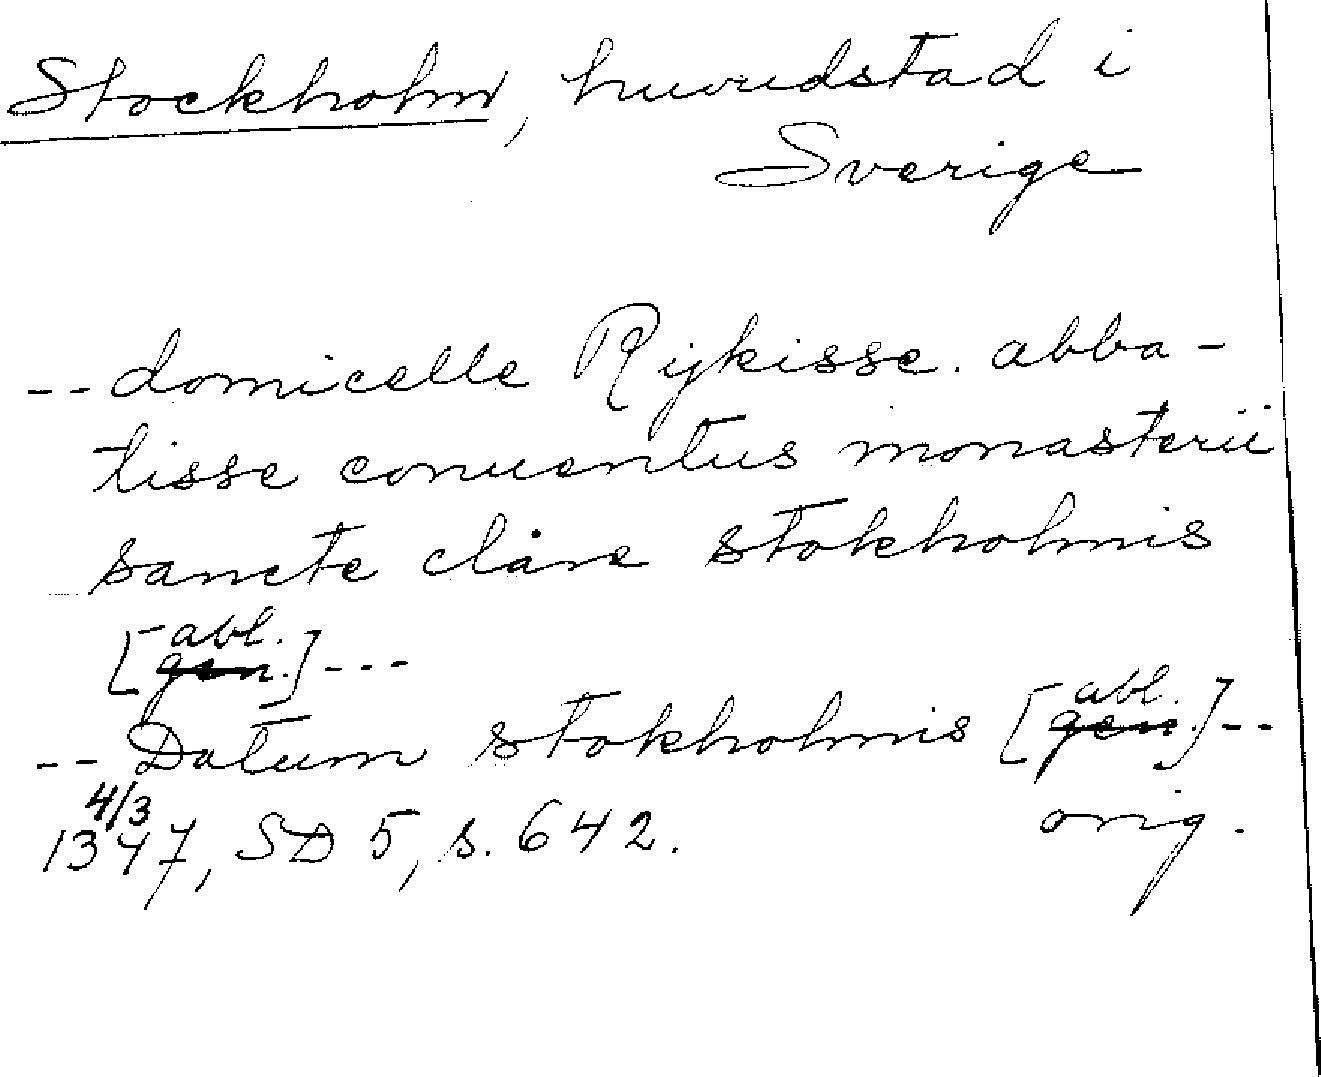 Stockholm, huvudstad i
Sverige
-- domicelle Rijkisse. abba-
tisse conuentus monasterii
sancte clare stokholmis
[abl. gen.] ---
-- Datum stokholmis [abl. gen.] --
4/3
1347, SD 5, s. 642. orig.